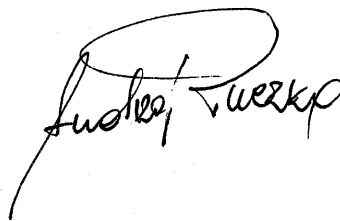 Andrzej Puczko